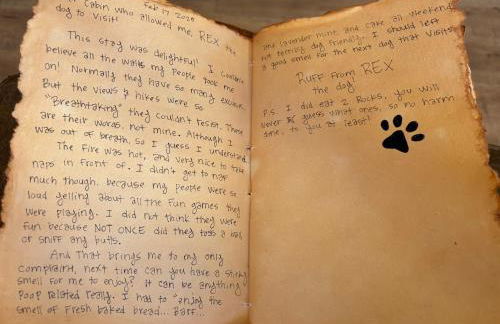 Feb 17 2020
Cabin who allowed me, REX the
dog to visit!
This stay was delightful! I couldn't
believe all the walks my People took me
on! Normally they have so many excuses.
But the views & hikes were so
"Breathtaking" they couldn't resist. Those
are their words, not mine. Although I
was out of breath, so I guess I understand.
The Fire was hot, and very nice to take
naps in front of. I didn't get to nap
much though, because my people were so
loud yelling about all the fun games they
were playing. I did not think they were
fun because NOT ONCE did they toss a ball
or sniff any butts.
And That brings me to my only
complaint, next time can you have a stinky
smell for me to enjoy? It can be anything
Poop related really. I had to "enjoy the
smell of Fresh baked bread... Barf...
and lavender mine and cake all weekend
not terribly dog friendly. I should left
a good smell for the next dog that visits
RUFF From REX
the dog!
P.S. I did eat 2 Rocks, you will
never guess what ones, so no harm
done, to you at least!